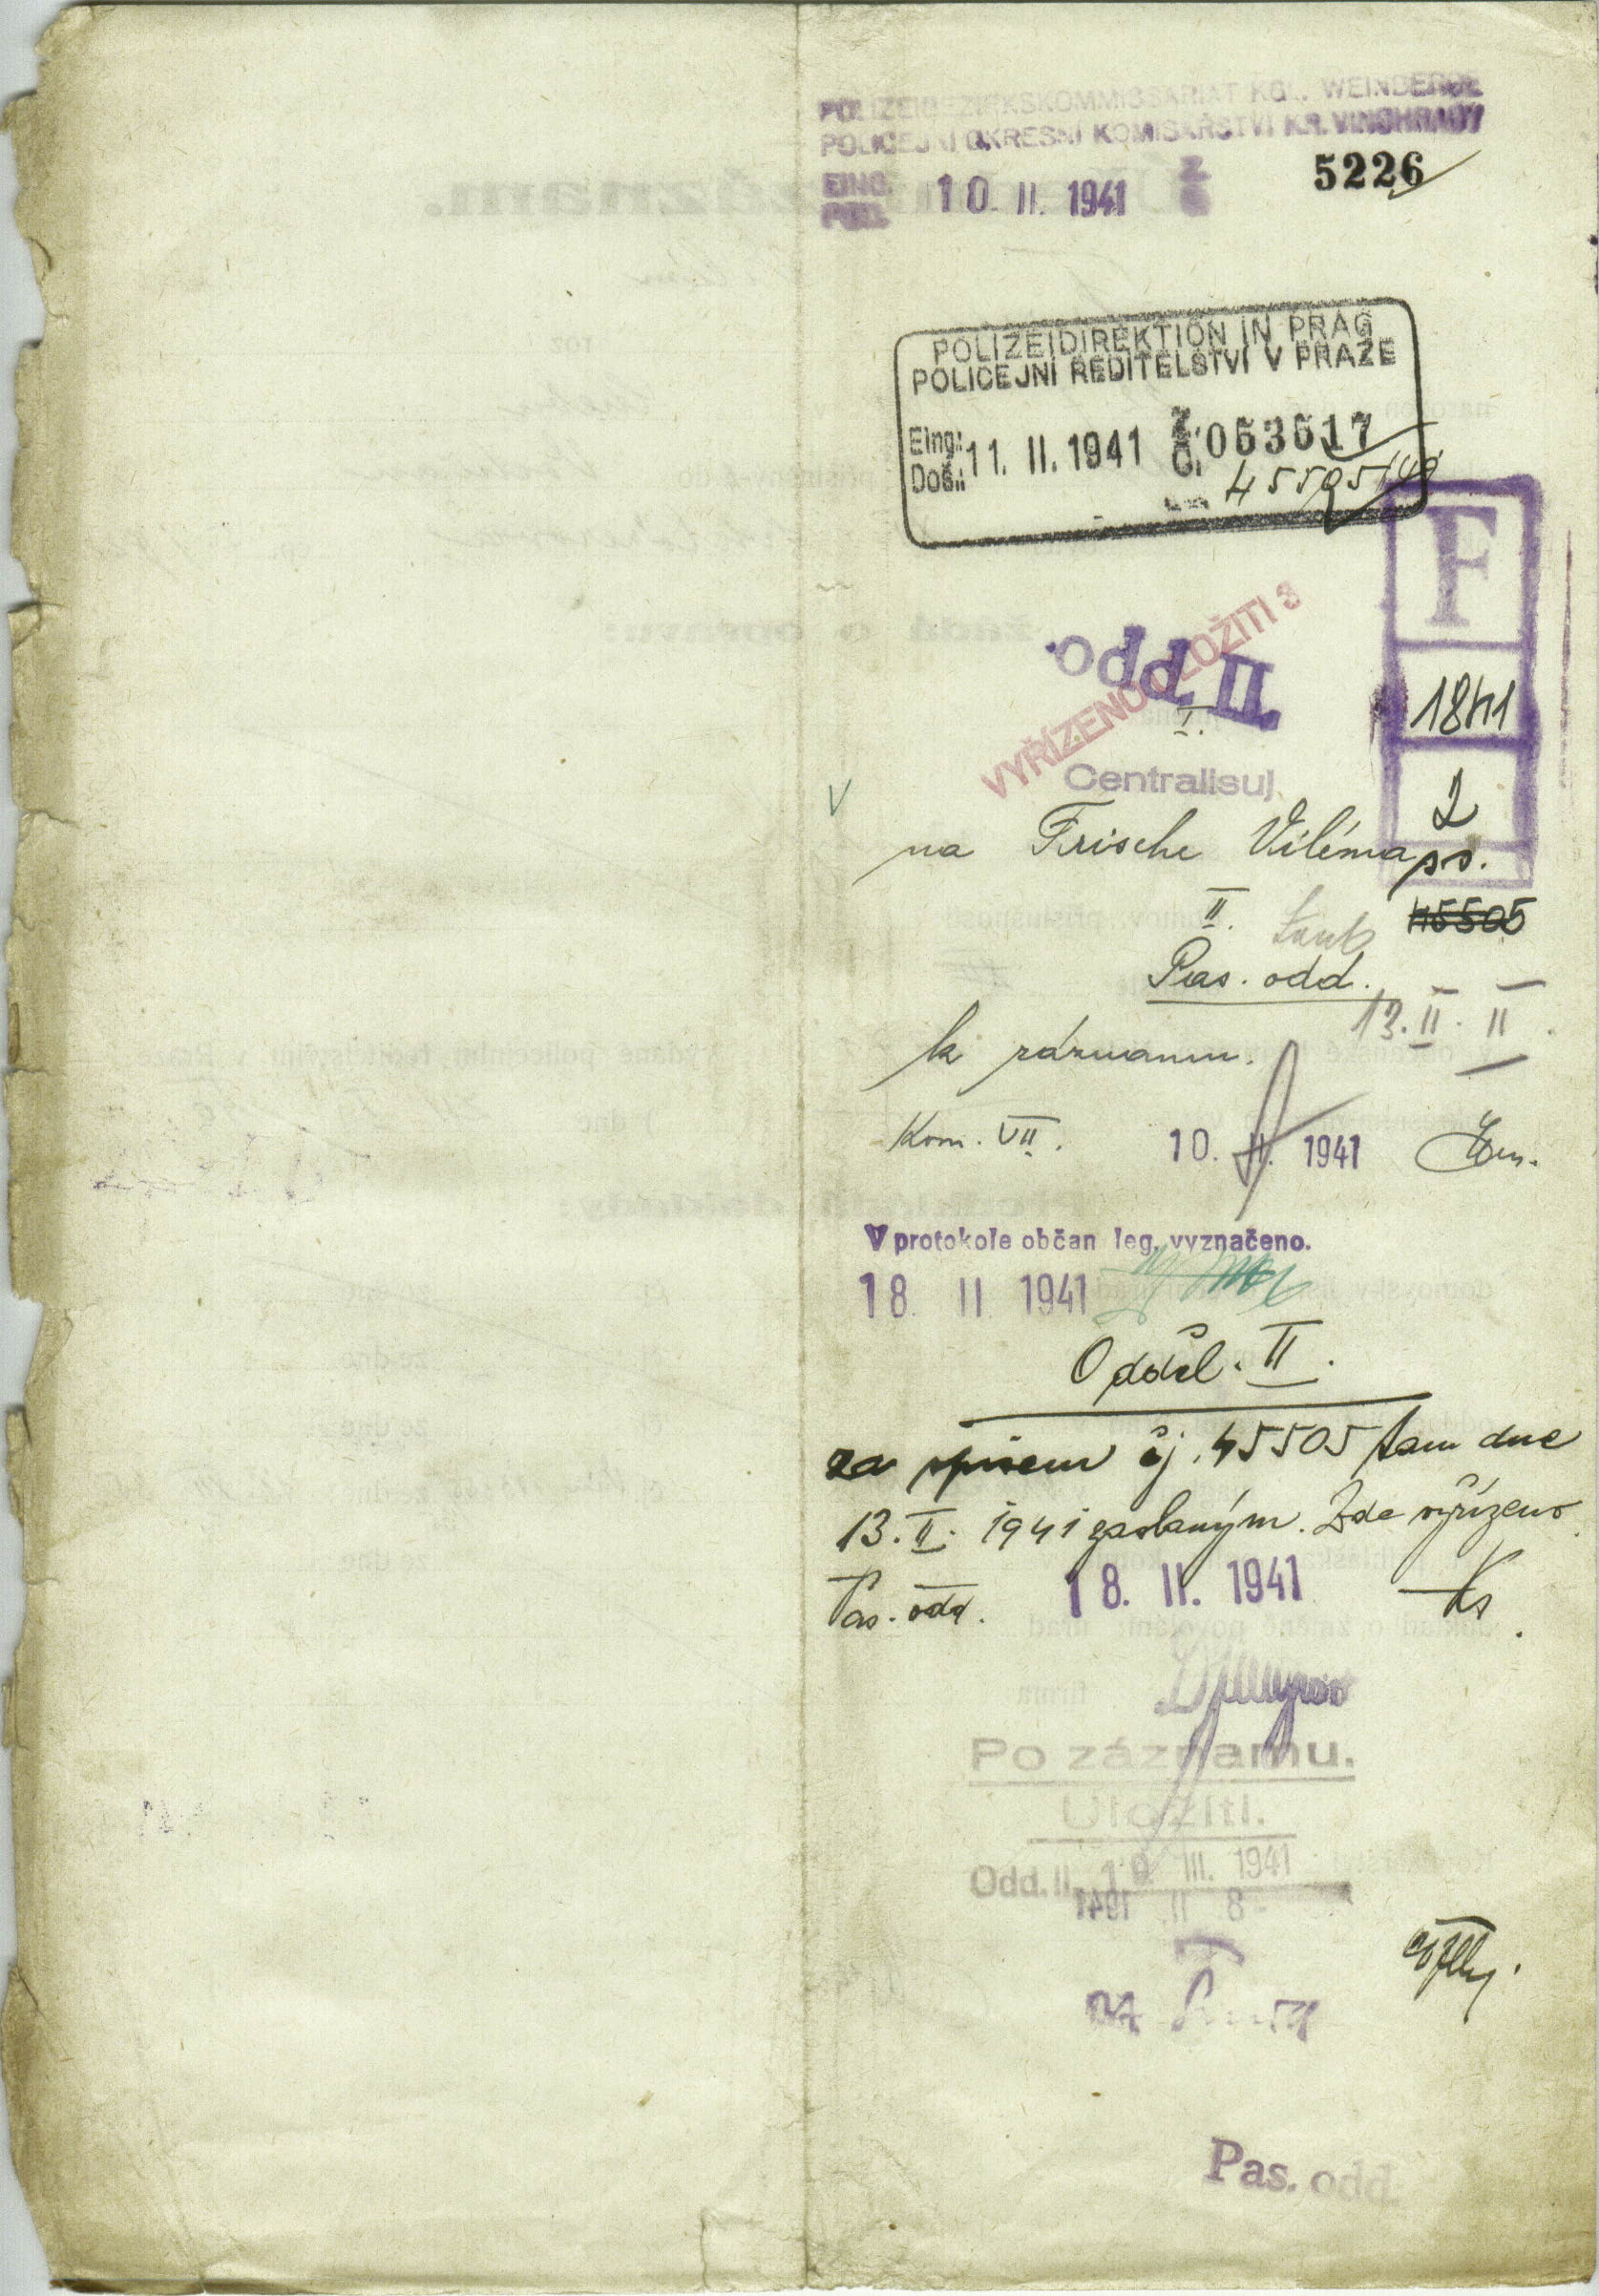 POLIZEIBEZIRKSKOMMISSARIAT KGL. WEINBERGE
POLICEJNÍ OKRESNÍ KOMISAŘSTVÍ KR. VINOHRADY
EING. 10. II. 1941 Z. 5226
POD. Č.
POLIZEIDIREKTION IN PRAG
POLICEJNÍ ŘEDITELSTVÍ V PRAZE
Eing.: 11. II. 1941 Z. 063617
Doš.: Č.
45505/40
F
odd. II.
VYŘÍZENO ULOŽITI 3
1841
I.
Centralisuj
2
na Frische Viléma
II. 45505
Pas. odd.
13. II. II
k záznamu.
Kom. VII. 10. II. 1941
V protokole občan leg. vyznačeno.
18. II 1941
Odděl. II.
za spisem čj. 45505 tam dne
13. II. 1941 zaslaným. Zde vyřízeno
Pas. odd. 18. II. 1941 Ks
Po záznamu.
Uložiti.
Odd. II. 19. III. 1941
8 II 1941
Pas. odd.